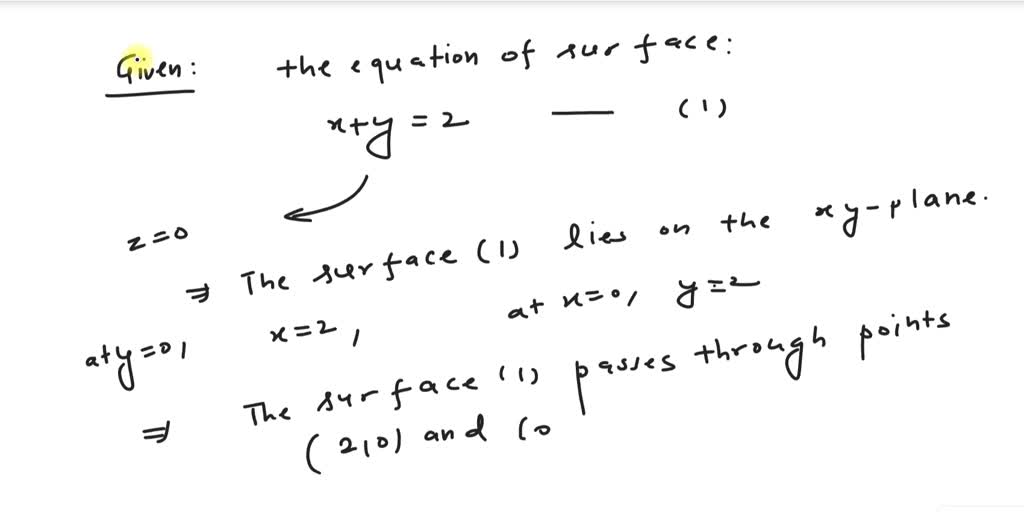 Given: the equation of surface:
x+y=2 — (1)
z=0
⇒ The surface (1) lies on the xy-plane.
at y=0, x=2, at x=0, y=2
⇒ The surface (1) passes through points
(2,0) and (0